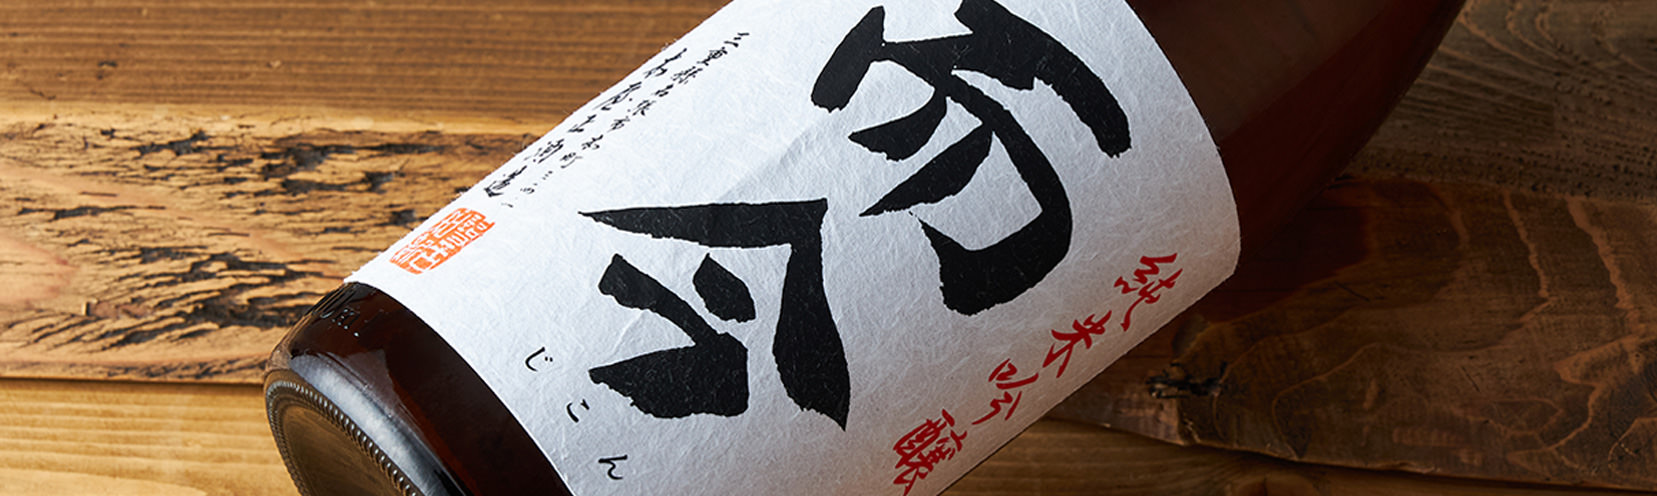 純米吟醸
而今
じこん
三重県名張市本町
木屋正酒造